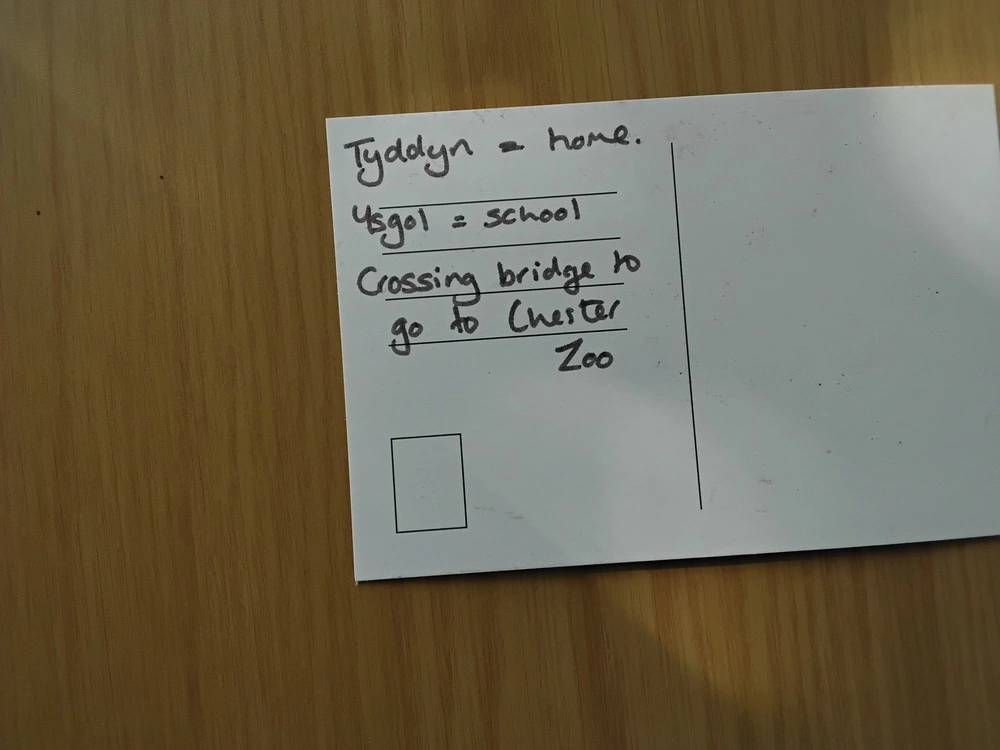 Tyddyn = home.
Ysgol = school
Crossing bridge to
go to Chester
Zoo